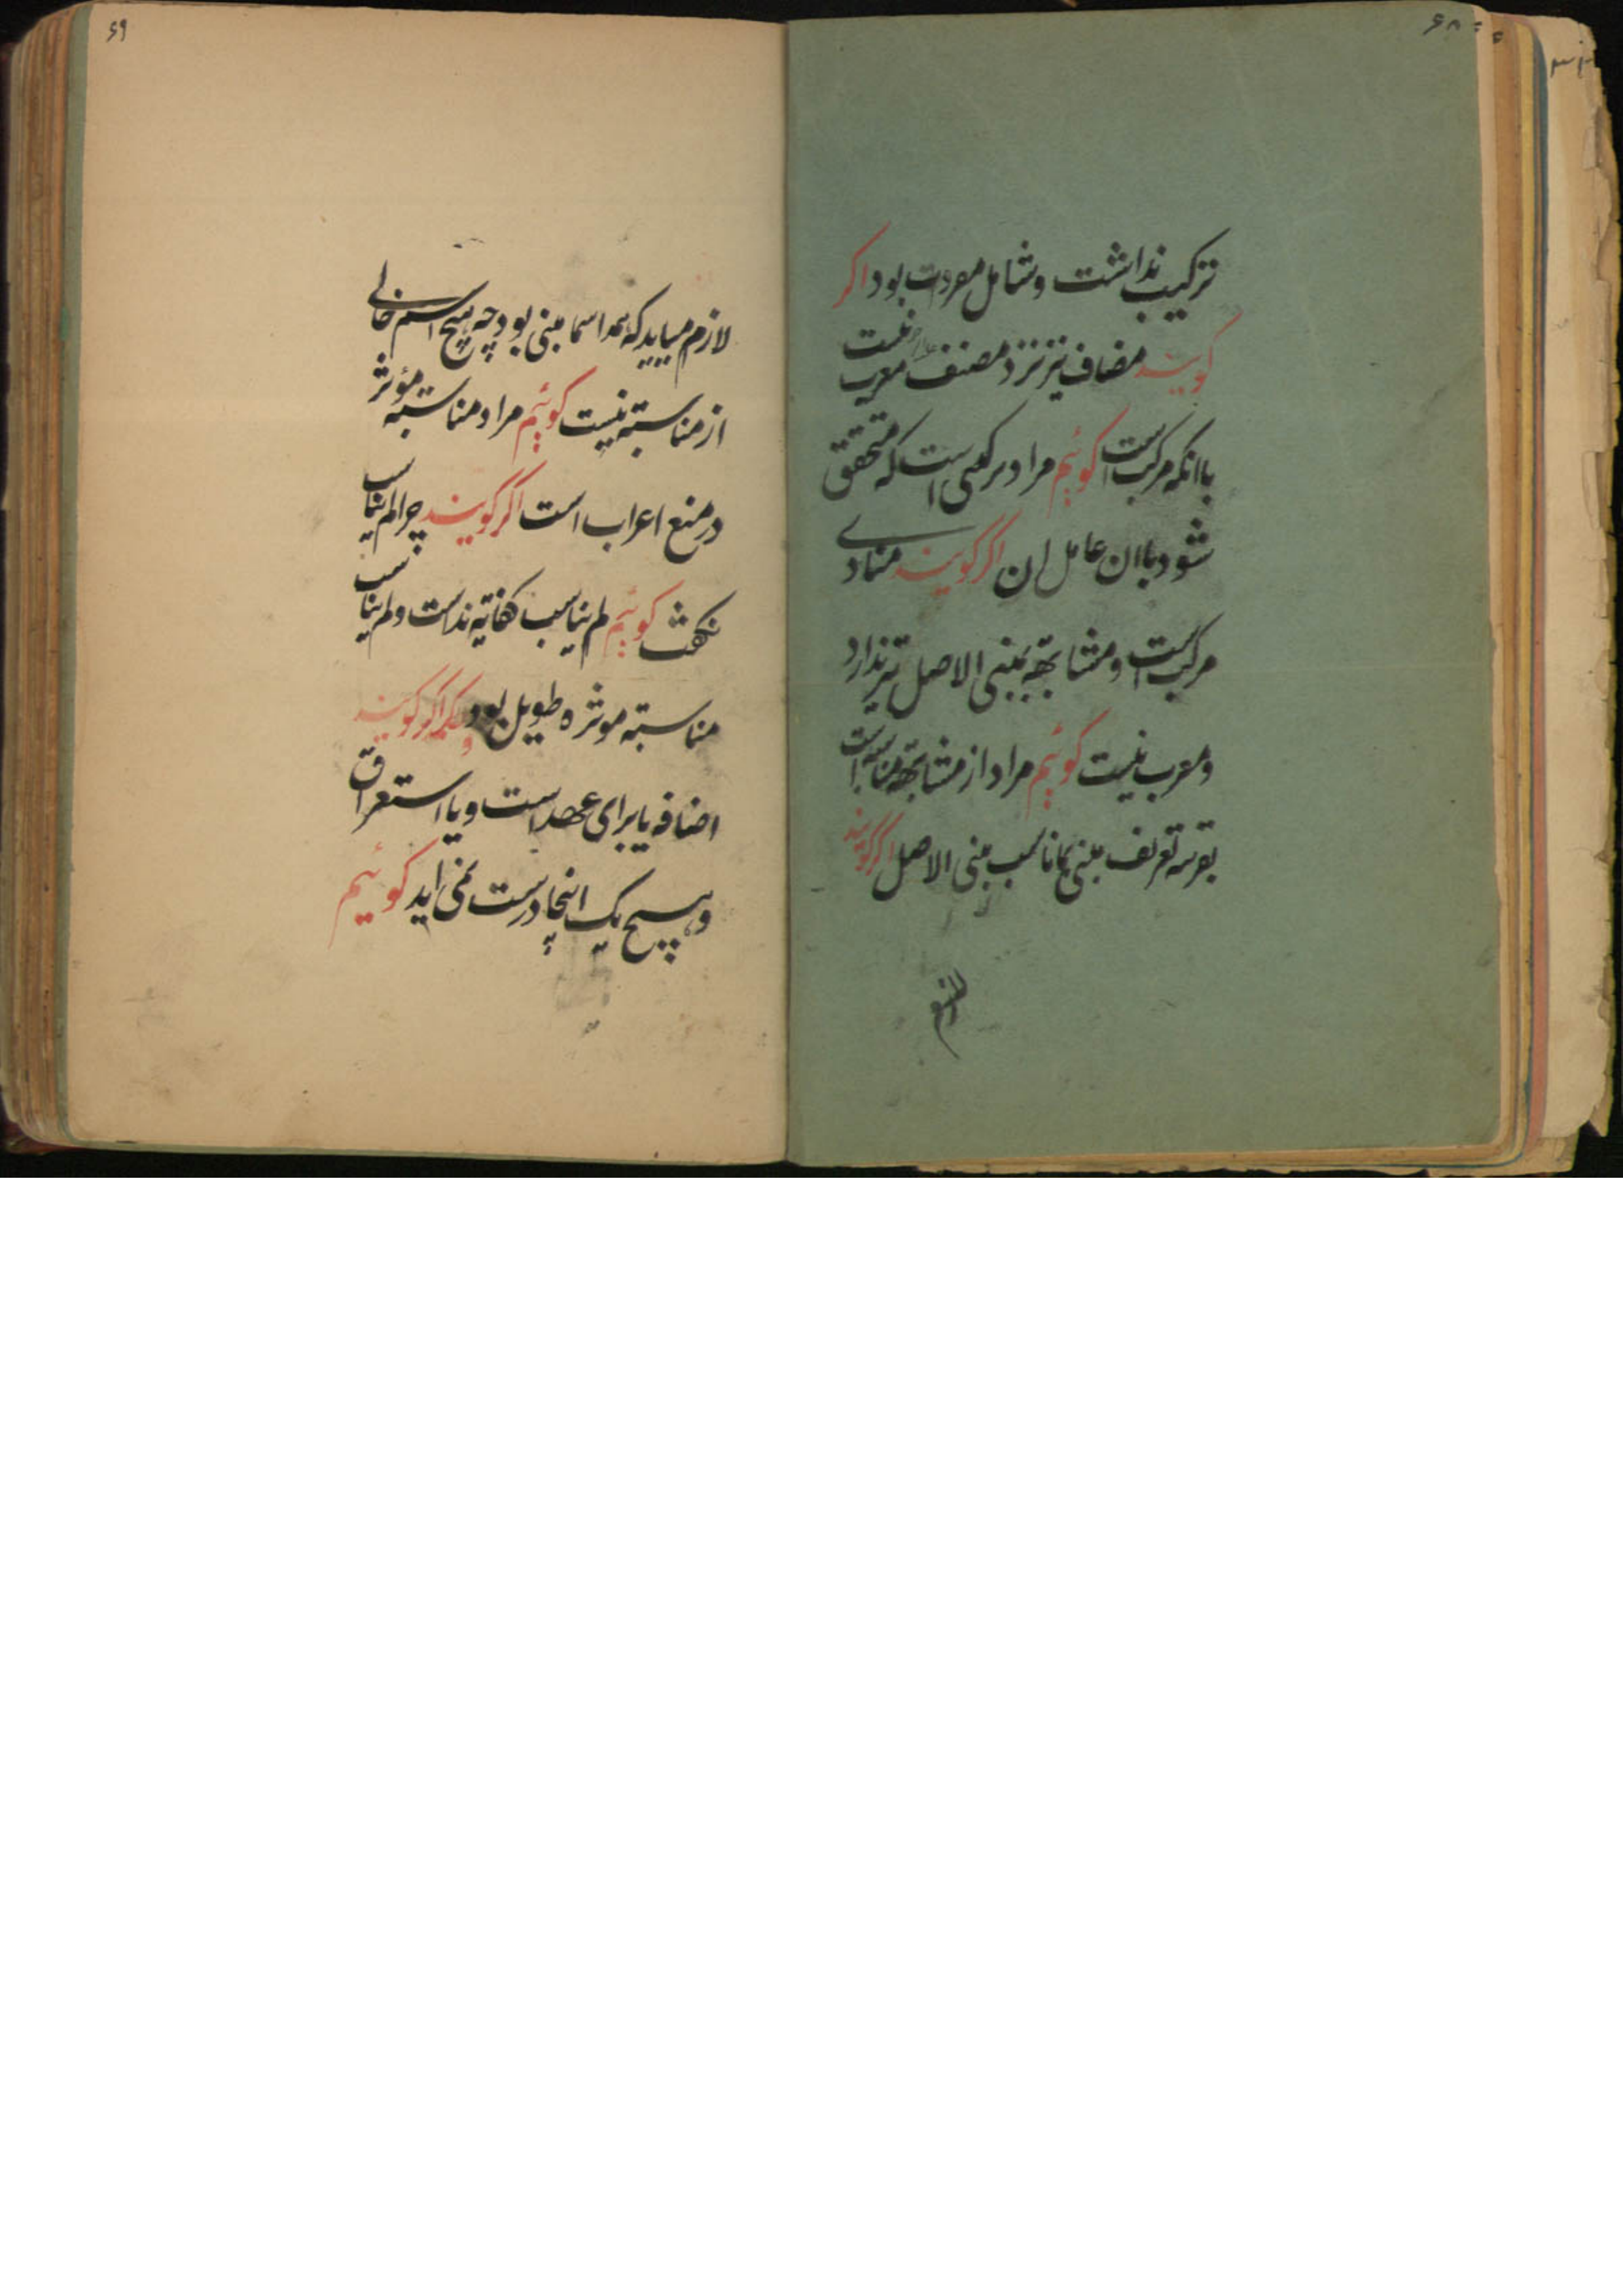 ۶۸
ترکیب نداشت و شامل مفردات بود اکر
کویند مضاف نیز نزد مصنف معرب نیست
باانکه مرکب است کوئیم مراد مرکبی است که متحقق
شود باان عامل ان اکر کویند منادی
مرکب است و مشابهة بمبنی الاصل نیز ندارد
و معرب نیست کوئیم مراد از مشابهة مناسبة است
بقرینه تعریف مبنی بما ناسب مبنی الاصل اکر کویند
۶۹
لازم میاید که همه اسما مبنی بود چه هیچ اسم خالی
از مناسبته نیست کوئیم مراد مناسبته مؤثر
در منع اعراب است اکر کویند چرا لم یناسب
نکفت کوئیم لم یناسب کفایة نداست و لم یناسب
مناسبته موثره طویل بود و دیکر اکر کویند
اضافه یا برای عهد است و یا استغراق
و هیچ یک اینجا درست نمی اید کوئیم